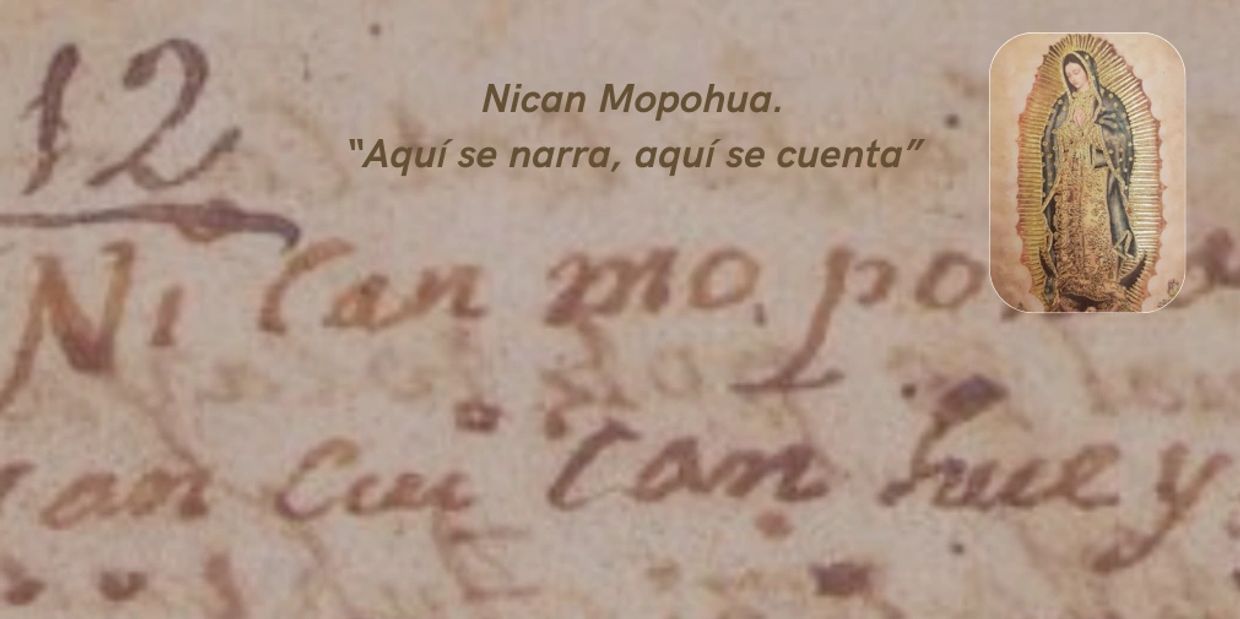 12
Nican Mopohua.
“Aquí se narra, aquí se cuenta”
Ni can mo po
can cui can huey